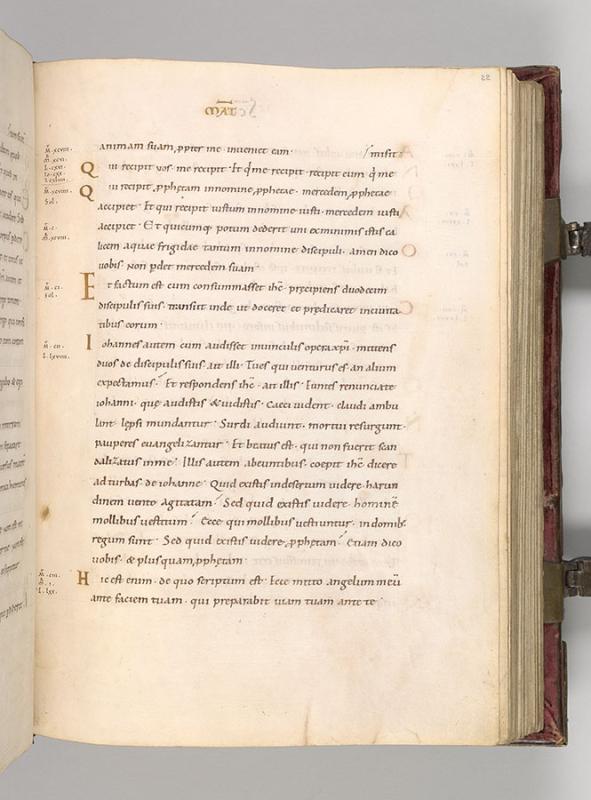 22
MAT
animam suam, ppter me inueniet eam· / misit·
Qui recipit uos· me recipit· Et q̇ me recipit· recipit eum q̇ me
Qui recipit pphetam innomine pphetae· mercedem pphetae
accipiet· Et qui recipit iustum innomine iusti· mercedem iusti
accipiet· Et quicumq; potum dederit uni exminimis istis ca
licem aquae frigidae tantum innomine discipuli· amen dico
uobis· non pdet mercedem suam·
Et factum est cum consummasset ihc̄· precipiens duodecim
discipulis suis· transiit inde ut doceret et predicaret inciuita
tibus eorum·
Iohannes autem cum audisset inuinculis opera xp̄i· mittens
duos de discipulis suis ait illi· Tu es qui uenturus es· an alium
expectamus· Et respondens ihc̄· ait illis· Euntes renunciate
iohanni· quę audistis & uidistis· Caeci uident· claudi ambu
lant· lepsi mundantur· Surdi audiunt· mortui resurgunt·
pauperes euangelizantur· Et beatus est· qui non fuerit scan
dalizatus in me· Illis autem abeuntibus· coepit ihc̄ dicere
ad turbas· de iohanne· Quid existis indesertum uidere· harun
dinem uento agitatam· Sed quid existis uidere· hominē
mollibus uestitum· Ecce qui mollibus uestiuntur· in domib;
regum sunt· Sed quid existis uidere, pphetam· Etiam dico
uobis· & plus quam, pphetam·
Hic est enim· de quo scriptum est· Ecce mitto angelum meū
ante faciem tuam· qui preparabit uiam tuam ante te·